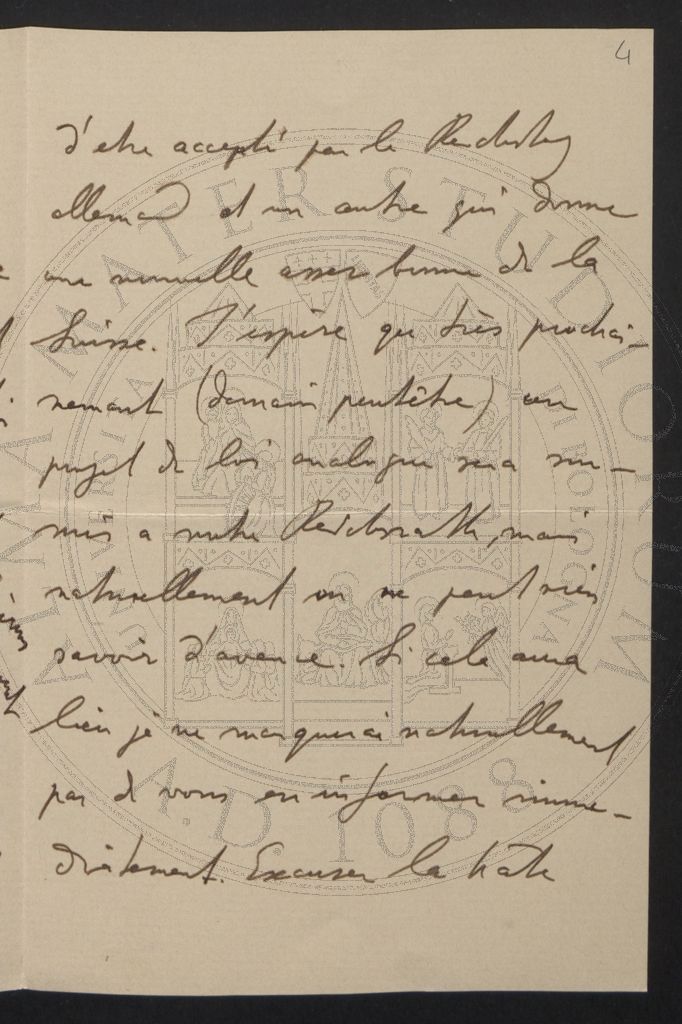 4
d'etre accepté par le Reichstag
allemand et un autre qui donne
une nouvelle assez bonne de la
Suisse. J'espère que très prochai-
nement (demain peutêtre) un
projet de loi analogue sera sou-
mis a notre Reichsrath, mais
naturellement on ne peut rien
savoir d'avance. Si cela aura
lieu je ne manquerai naturellement
pas de vous en informer imme-
diatement. Excusez la hâte
ALMA MATER STUDIORUM
UNIVERSITA DI BOLOGNA
A.D. 1088